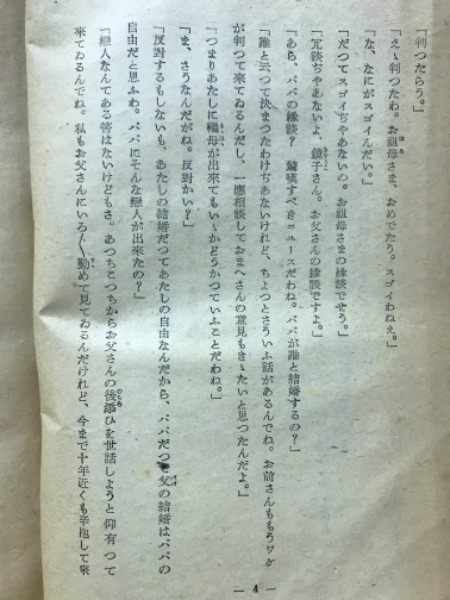 「判つたらう。」
「えゝ判つたわ。お祖母さま、おめでたう。スゴイわねえ。」
「な、なにがスゴイんだい。」
「だつてスゴイぢやあないの。お祖母さまの縁談でせう。」
「冗談ぢやあないよ、鏡子さん。お父さんの縁談ですよ。」
「あら、パパの縁談？ 讃嘆すべきニユースだわね。パパが誰と結婚するの？」
「誰と云つて決まつたわけぢあないけれど、ちよつとさういふ話があるんでね。お前さんももうワケ
が判つて来てゐるんだし、一應相談しておまへさんの意見もきゝたいと思つたんだよ。」
「つまりあたしに繼母が出來てもいゝかどうかつていふことだわね。」
「ま、さうなんだがね。反対かい？」
「反對するもしないも、あたしの結婚だつてあたしの自由なんだから、パパだつて父の結婚はパパの
自由だと思ふわ。パパにそんな戀人が出來たの？」
「戀人なんてある筈はないけどもさ。あつちこつちからお父さんの後添ひを世話しようと仰有つて
來てゐるんでね。私もお父さんにいろ〳〵勸めて見てゐるんだけれど、今まで十年近くも辛抱して來
— 4 —